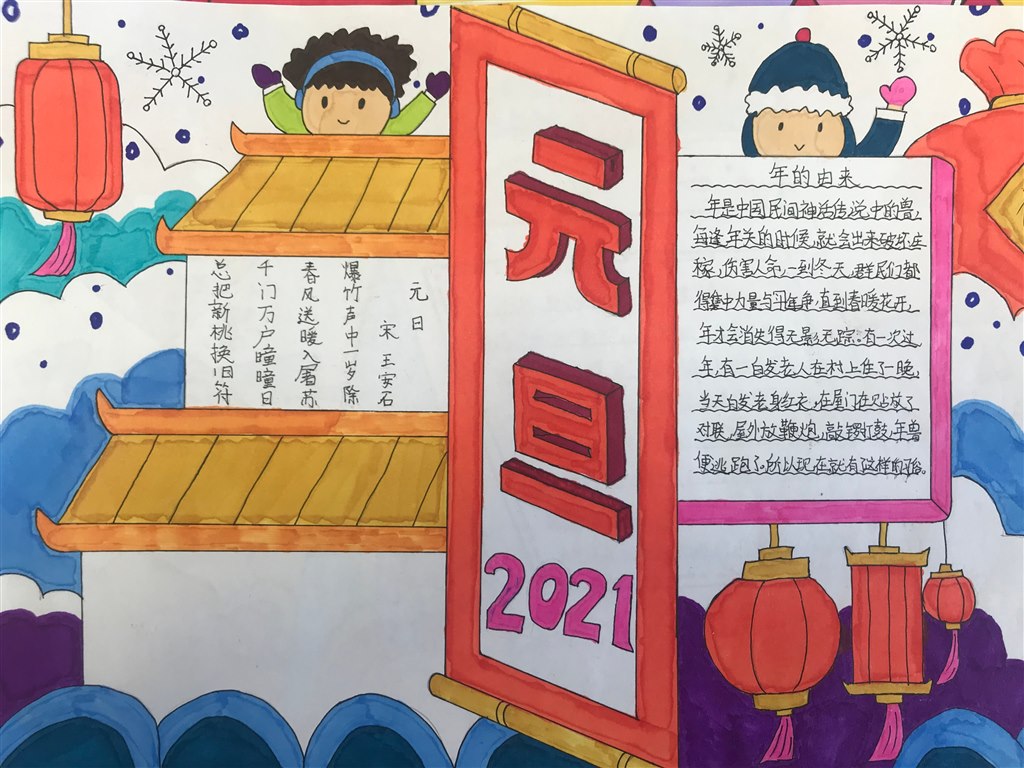 元旦
2021
元日
宋 王安石
爆竹声中一岁除
春风送暖入屠苏
千门万户曈曈日
总把新桃换旧符
年的由来
年是中国民间神话传说中的兽,
每逢年关的时候,就会出来破坏庄
稼,伤害人命,一到冬天,群民们都
得集中力量与年争,直到春暖花开,
年才会消失得无影无踪。有一次过
年,有一白发老人在村上住了一晚,
当天白发老身红衣,在屋门在贴放了
对联,屋外放鞭炮,敲锣打鼓,年兽
便逃跑了,所以现在就有这样的俗。